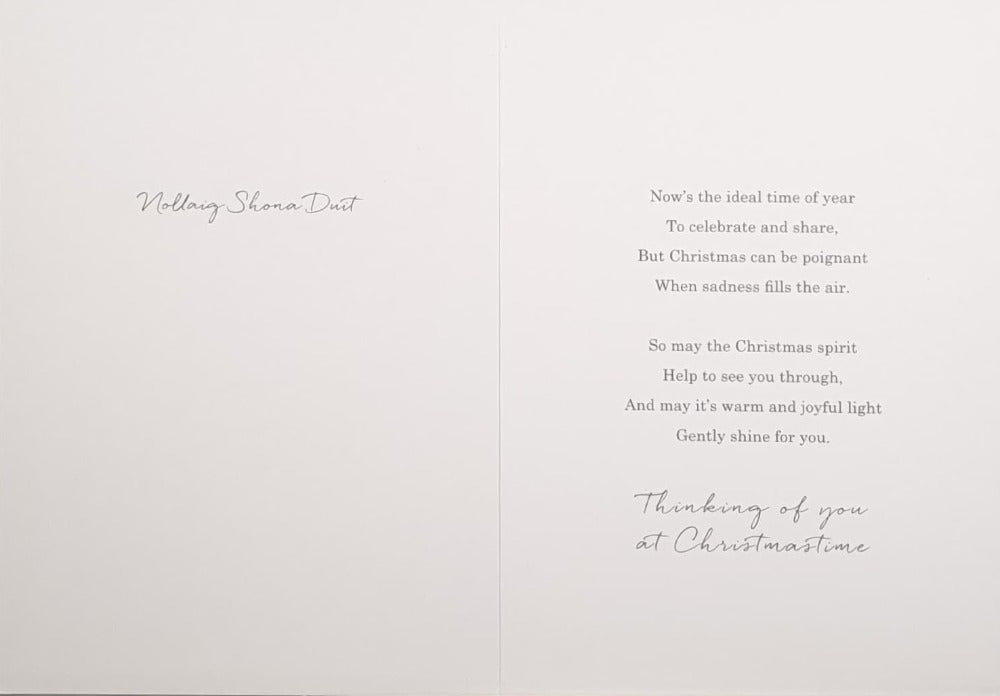 Nollaig Shona Duit
Now's the ideal time of year
To celebrate and share,
But Christmas can be poignant
When sadness fills the air.
So may the Christmas spirit
Help to see you through,
And may it's warm and joyful light
Gently shine for you.
Thinking of you
at Christmastime